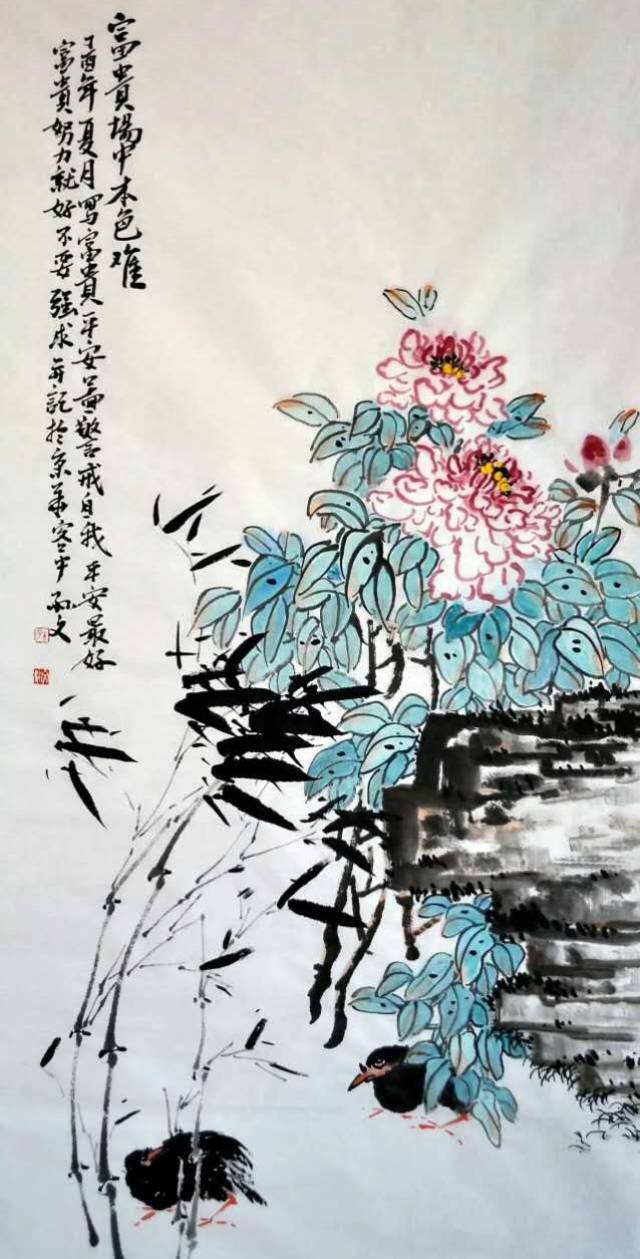 富貴場中本色难
丁酉年夏月写富貴平安啚警戒自我平安最好
富貴努力就好不要强求并記於京華客中